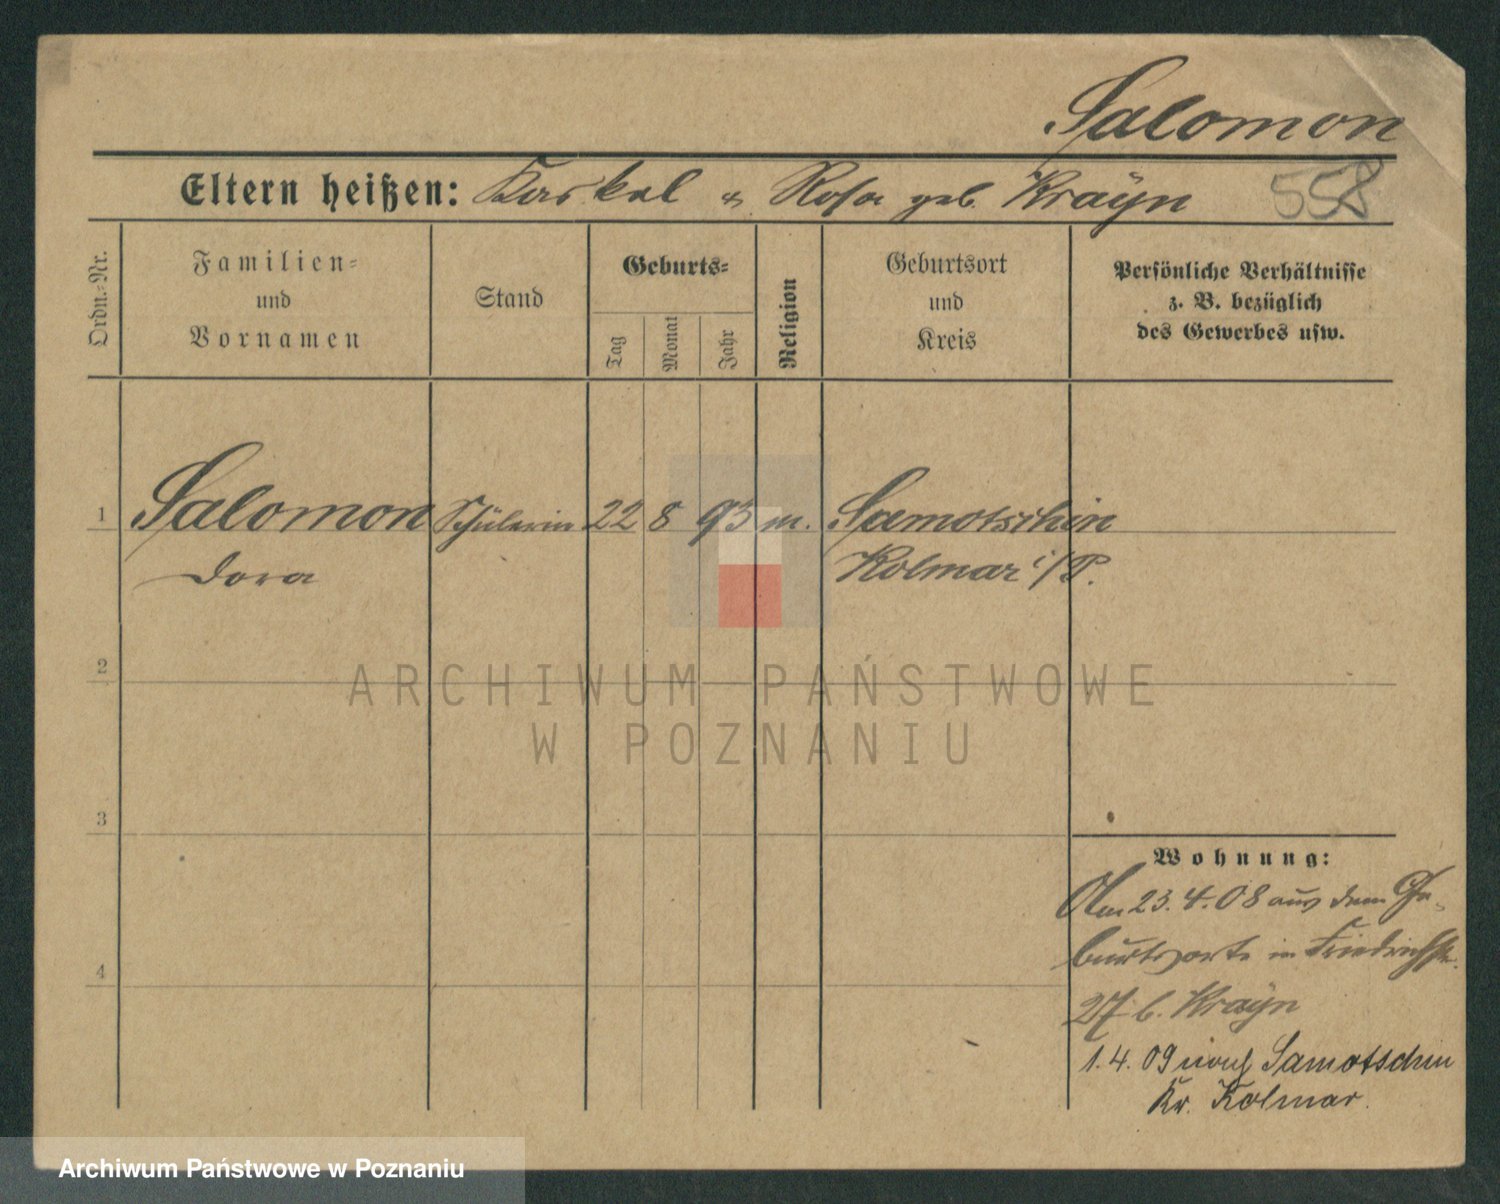 Salomon
Eltern heißen: Kaskel & Rosa geb. Krayn 558
Ordn.-Nr.
Familien- und Vornamen
Stand
Geburts-
Tag
Monat
Jahr
Religion
Geburtsort und Kreis
Persönliche Verhältnisse
z. B. bezüglich
des Gewerbes usw.
1 Salomon Schülerin 22 8 93 m. Samotschin
Dora Kolmar i/P.
2
ARCHIWUM PAŃSTWOWE
W POZNANIU
3
Wohnung:
23.4.08 aus dem Ge-
burtsorte in Friedrichstr.
4
27 b. Krayn
1.4.09 nach Samotschin
Kr. Kolmar.
Archiwum Państwowe w Poznaniu